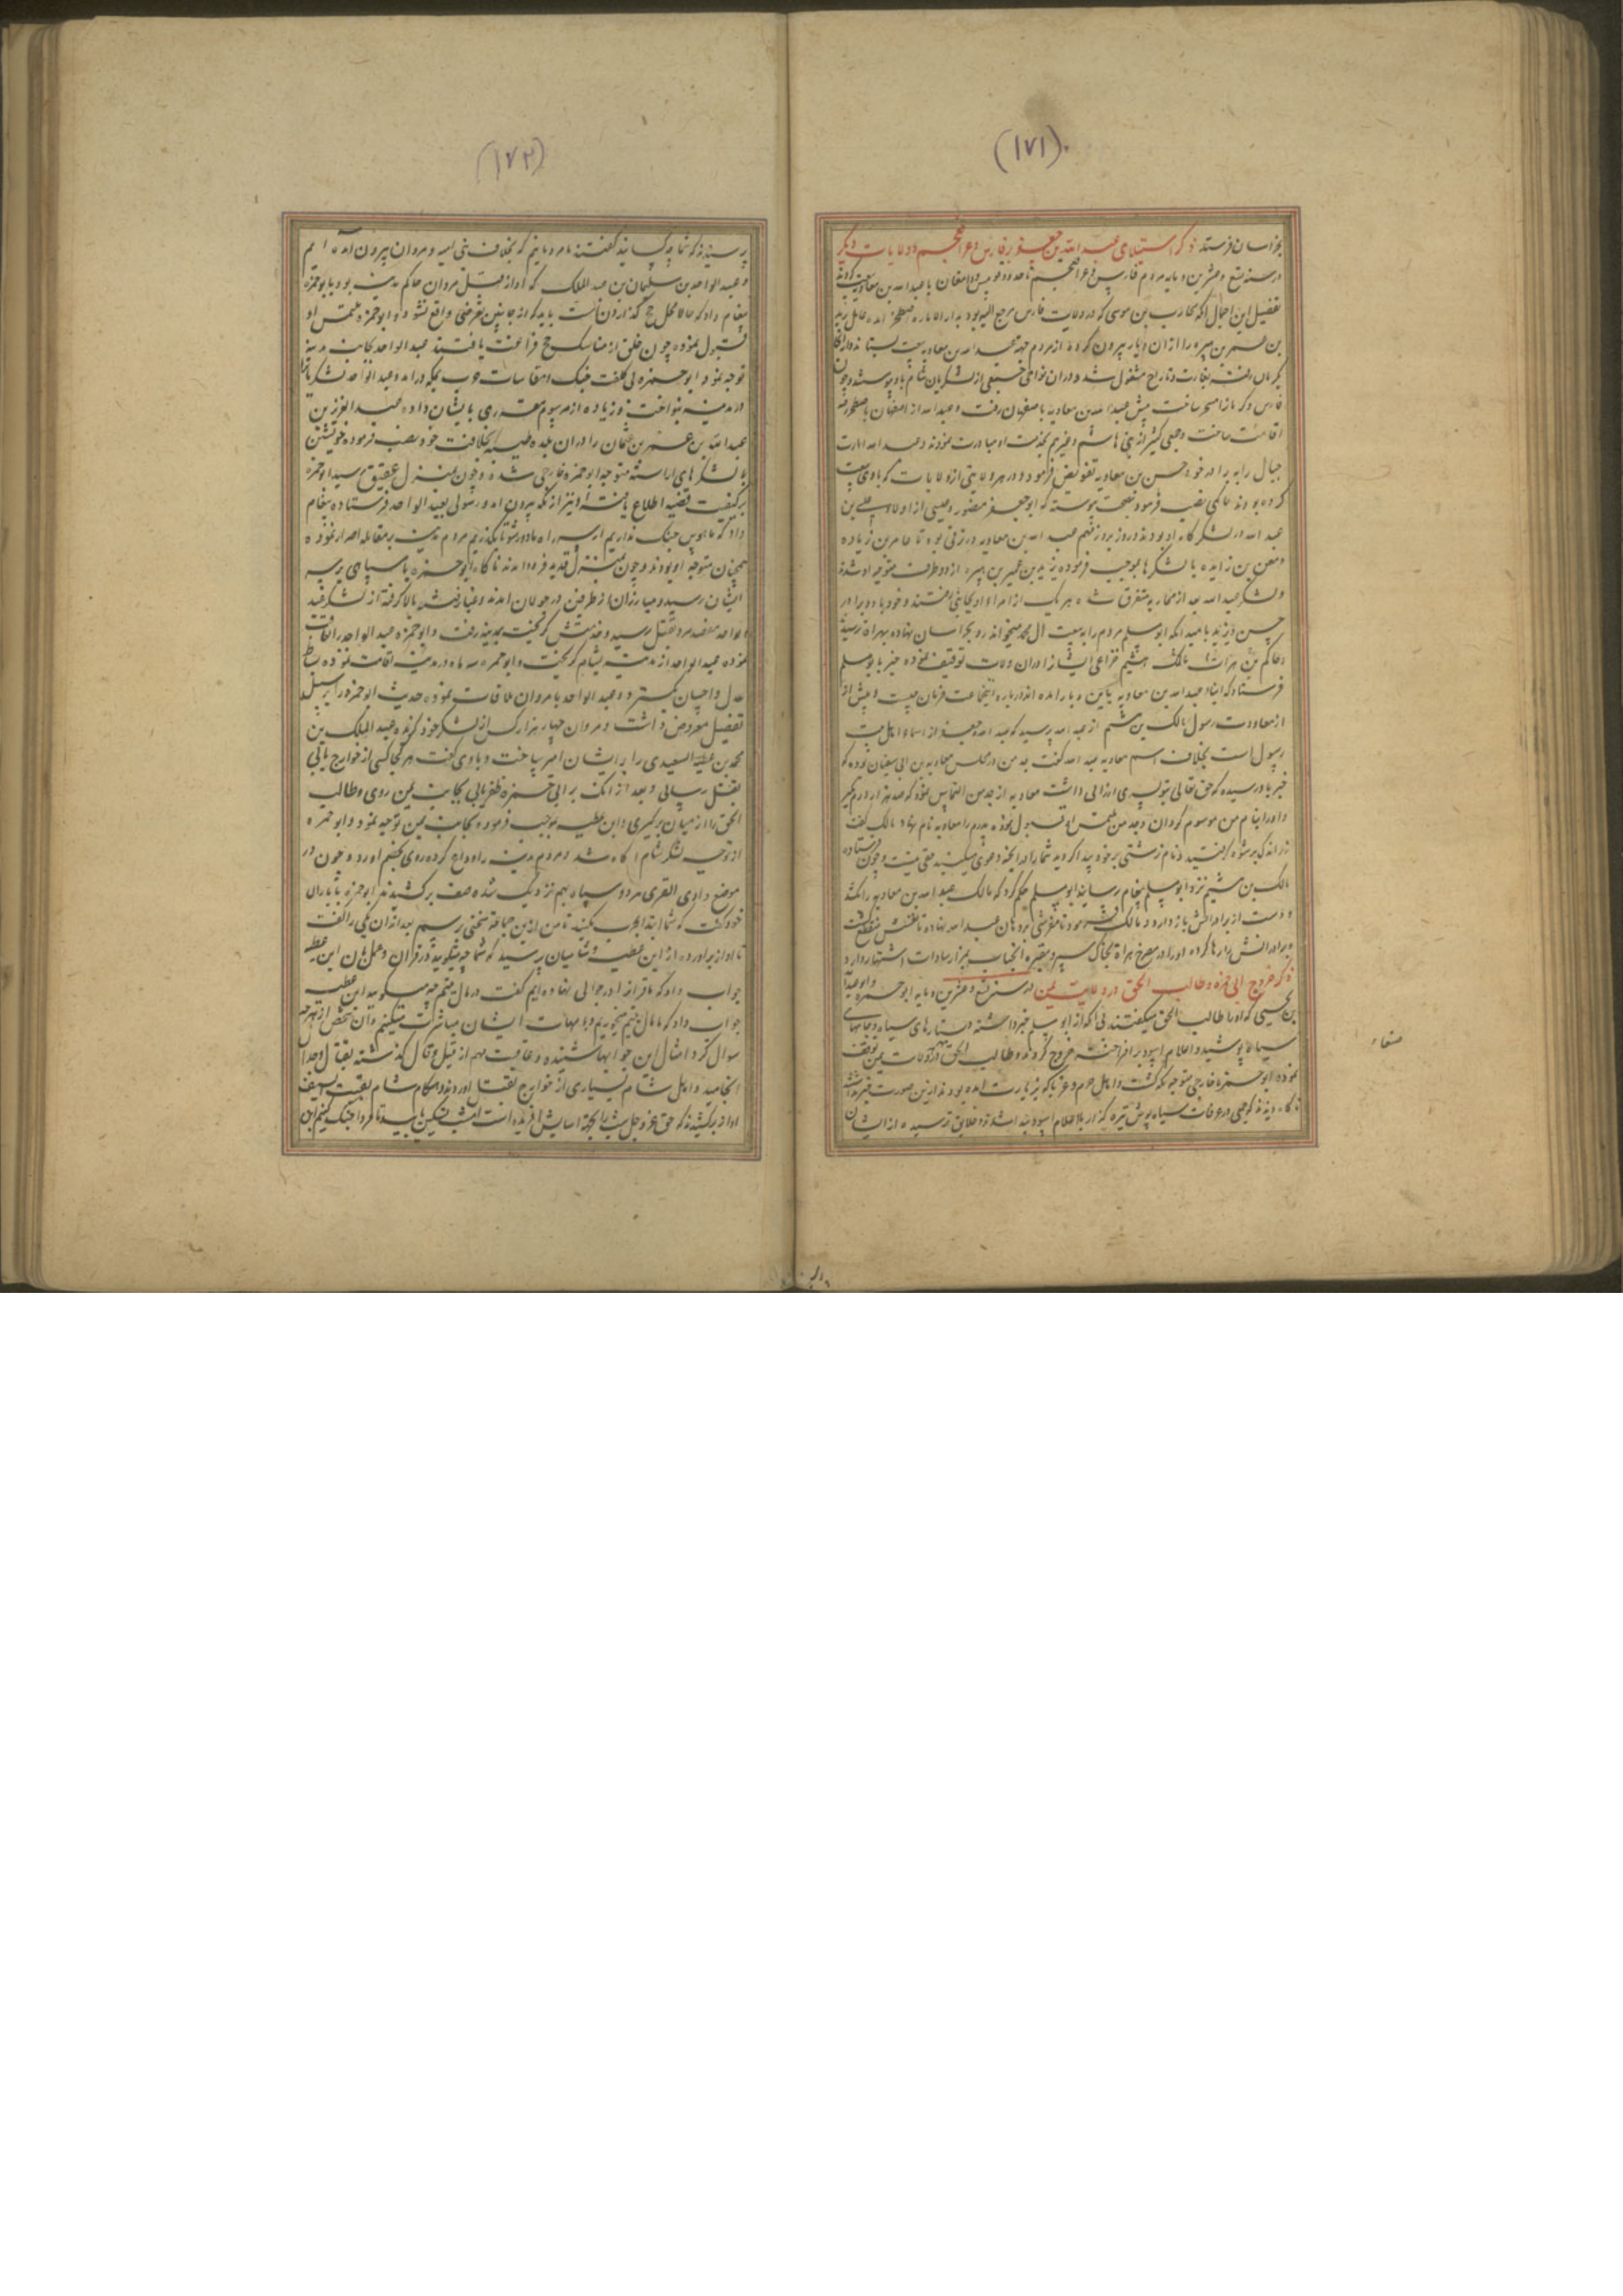 (۱۷۱)
بخراسان فرستد ذکر استیلای عبد الله بن جعفر بفارس و عراق عجم و ولایات دیگر
در سنه تسع و عشرین و مایه مردم فارس و عراق عجم تا حدود قومس و دامغان با عبد الله بن معاویه بیعت کردند
تفصیل این اجمال آنکه محارب بن موسی که در ولایت فارس مرجع الیه بود بدار الاماره اصطخر آمده عامل
بن عمر بن هبیره را از آن دیار بیرون کرد و از مردم جهه عبد الله بن معاویه بیعت بستاند و از آنجا
بکرمان رفته بغارت و تاراج مشغول شد و در آن نواحی جمعی از لشکریان شام باو پیوستند و چون
فارس و کرمان را مسخر ساخت پیش عبد الله بن معاویه باصفهان رفت و عبد الله از اصفهان باصطخر رفته
اقامت ساخت و جمعی کثیر از بنی هاشم و غیرهم بخدمت او مبادرت نمودند و عبد الله امارت
جبال را به برادر خود حسن بن معاویه تفویض فرمود و در هر ولایتی از ولایات که با وی بیعت
کرده بودند حاکمی نصب فرمود و بصحت پیوسته که ابو جعفر منصور و عیسی از اولاد علی بن
عبد الله در لشکرگاه او بودند و روز بروز مهم عبد الله بن معاویه در ترقی بود تا عامر بن زیاده
و معن بن زایده با لشکرها بموجب فرموده یزید بن عمر بن هبیره از دو طرف متوجه او شدند
و لشکر عبد الله بعد از محاربه متفرق شده هر یک از امراء او بجانبی رفتند و خود با دو برادر
حسن و یزید بامید آنکه ابو مسلم مردم را به بیعت آل محمد میخواند رو بخراسان نهاده بهراة رسید
و حاکم هراة مالک بن هیثم خزاعی ایشان را در آن ولایت توقیف نموده خبر بابو مسلم
فرستاد که اینک عبد الله بن معاویه باین دیار آمده اند در باره اینجماعت فرمان چیست و پیش از
از معاودت رسول مالک بن هیثم از عبد الله پرسید که عبد الله و جعفر از اسماء اهل بیت
رسول است بخلاف اسم معاویه عبد الله گفت جد من در مجلس معاویه بن ابی سفیان بوده که
خبر باو رسیده که حق تعالی بتو پسری ارزانی داشت معاویه از جد من التماس نمود که صد هزار درم بگیر
و او را بنام من موسوم گردان و جد من ملتمس او قبول نموده پدرم را معاویه نام نهاد مالک گفت
مالک بن هیثم نزد ابو مسلم پیغام رسانید ابو مسلم حکم کرد که مالک عبد الله بن معاویه را بکشد
و دست از برادرانش باز دارد و مالک فرمود تا مفرشی بر دهان عبد الله نهاده تا نفسش منقطع گشت
و برادرانش را رها کرده او را در مصرخ هراة بخاک سپرد و مقبره آنجناب بمزار سادات اشتهار دارد
ذکر خروج ابی حمزه و طالب الحق در ولایت یمن در سنه تسع و عشرین و مایه ابو حمزه و ابو عبد الله
بن یحیی که او را طالب الحق میگفتند بی آنکه از ابو مسلم خبر داشته دستارهای سیاه و جامهای
سیاه پوشیده و اعلام اسود بر افراخته خروج کردند و طالب الحق در ولایت یمن توقف
نموده ابو حمزه خارجی متوجه مکه گشت و اهالی حرم و غربا که بزیارت آمده بودند از این صورت خبر نداشتند
ناگاه دیدند که جمعی در عرفات سیاه پوش تیره گذار با اعلام اسود پیدا شدند و خلایق ترسیده از ایشان
صنعاء
(۱۷۲)
پرسیدند که شما چه کسانید گفتند ما مردمانیم که بخلاف بنی امیه و مروان بیرون آمده ایم
و عبد الواحد بن سلیمان بن عبد الملک که او از قبل مروان حاکم مدینه بود بابو حمزه
پیغام داد که حالا محل حج گذاردن است باید که از جانبین تعرضی واقع نشود و ابو حمزه ملتمس او
قبول نموده چون خلق از مناسک حج فراغت یافتند عبد الواحد بجانب مدینه
توجه نمود ابو حمزه بی کلفت جنگ و مقاسات حرب بمکه در آمد و عبد الواحد لشکریان را
در مدینه بنواخت و زیاده از مرسوم مقرری بایشان داده عبد العزیز بن
عبد الله بن عمر بن عثمان را در آن بلده طیبه بخلافت خود نصب فرموده خویشتن
با لشکرهای آراسته متوجه ابو حمزه خارجی شد و چون بمنزل عقیق رسید ابو حمزه
بر کیفیت قضیه اطلاع یافته او نیز از مکه بیرون آمد و رسولی بعبد الواحد فرستاده پیغام
داد که ما هوس جنگ نداریم از سر راه ما دور شو تا بگذریم مردم مدینه بر مقابله اصرار نموده
همچنان متوجه او بودند و چون بمنزل قدید فرود آمدند ناگاه ابو حمزه با سپاهی بر سر
ایشان رسید و مبارزان از طرفین در جولان آمدند و غبار فتنه بالا گرفته از لشکر عبد
الواحد هفتصد مرد بقتل رسید و خدمتش گریخت بمدینه رفت و ابو حمزه عبد الواحد را تعاقب
نموده عبد الواحد از مدینه بشام گریخت و ابو حمزه سه ماه در مدینه اقامت نموده بساط
عدل و احسان بگسترد و عبد الواحد با مروان ملاقات نموده حدیث ابو حمزه را بر سبیل
تفصیل معروض داشت و مروان چهار هزار کس از لشکر خود گزیده عبد الملک بن
محمد بن عطیة السعدی را بر ایشان امیر ساخت و با وی گفت هر کجا کسی از خوارج یابی
بقتل رسانی و بعد از آنک بر ابی حمزه ظفر یابی بجانب یمن روی و طالب
الحق را از میان برگیری و ابن عطیه بموجب فرموده بجانب یمن توجه نمود و ابو حمزه
از توجه لشکر شام آگاه شد و مردم مدینه را وداع کرده روی بخصم آورد و چون در
موضع وادی القری هر دو سپاه بهم نزدیک شده صف برکشیدند ابو حمزه با یاران
خود گفت که شما ابتدا بحرب مکنید تا من ازین جماعة سخنی پرسم بعد از آن یکی را گفت
تا آواز برآورده از ابن عطیه و شامیان پرسید که شما چه میگویید در قرآن و عمل بآن ابن عطیه
جواب داد که ما قرآن را در جوالی نهاده ایم گفت در مال یتیم چه میگویید ابن عطیه
جواب داد که ما مال یتیم میخوریم و با مهات ایشان مباشرت میکنیم و آن شخص از هر چه
سوال کرد امثال این جوابها شنیده و عاقبت مهم از قیل و قال گذشته بقتال و جدال
انجامید و اهل شام بسیاری از خوارج بقتل آوردند و هنگام شام بقیت السیف
آواز برکشیدند که حق عز و جل شب را بجهة آسایش آفریده است امشب تسکین یابید تا فردا جنگ کنیم ابن